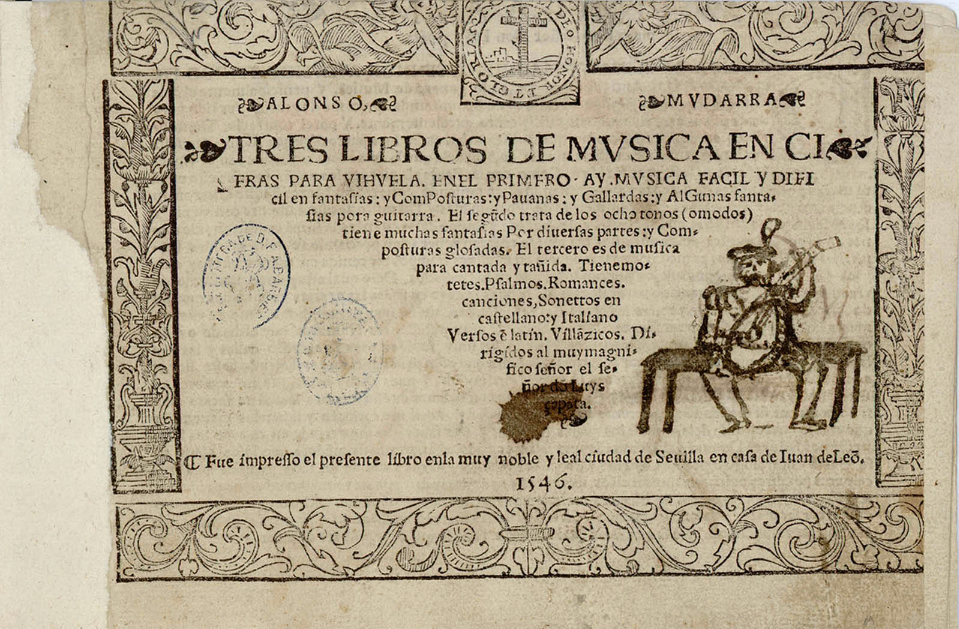 DEO HONOR ET GLORIA
ALONSO,
MVDARRA
TRES LIBROS DE MVSICA EN CI
FRAS PARA VIHVELA. ENEL PRIMERO. AY. MVSICA FACIL Y DIFI
cil en fantasias: y ComPosturas: y Pauanas: y Gallardas: y AlGunas fanta-
sias pora guitarra. El segũdo trata de los ocho tonos (o modos)
tiene muchas fantasias Por diuersas partes: y Com-
posturas glosadas. El tercero es de musica
para cantada y tañida. Tiene mo-
tetes. Psalmos. Romances.
canciones, Sonettos en
castellano: y Italiano
Versos ẽ latin. Villãzicos. Di-
rigidos al muy magni-
fico señor el se-
ñor dõ Luys
çapata.
Fue impresso el presente libro enla muy noble y leal ciudad de Seuilla en casa de Iuan de Leõ.
1546.